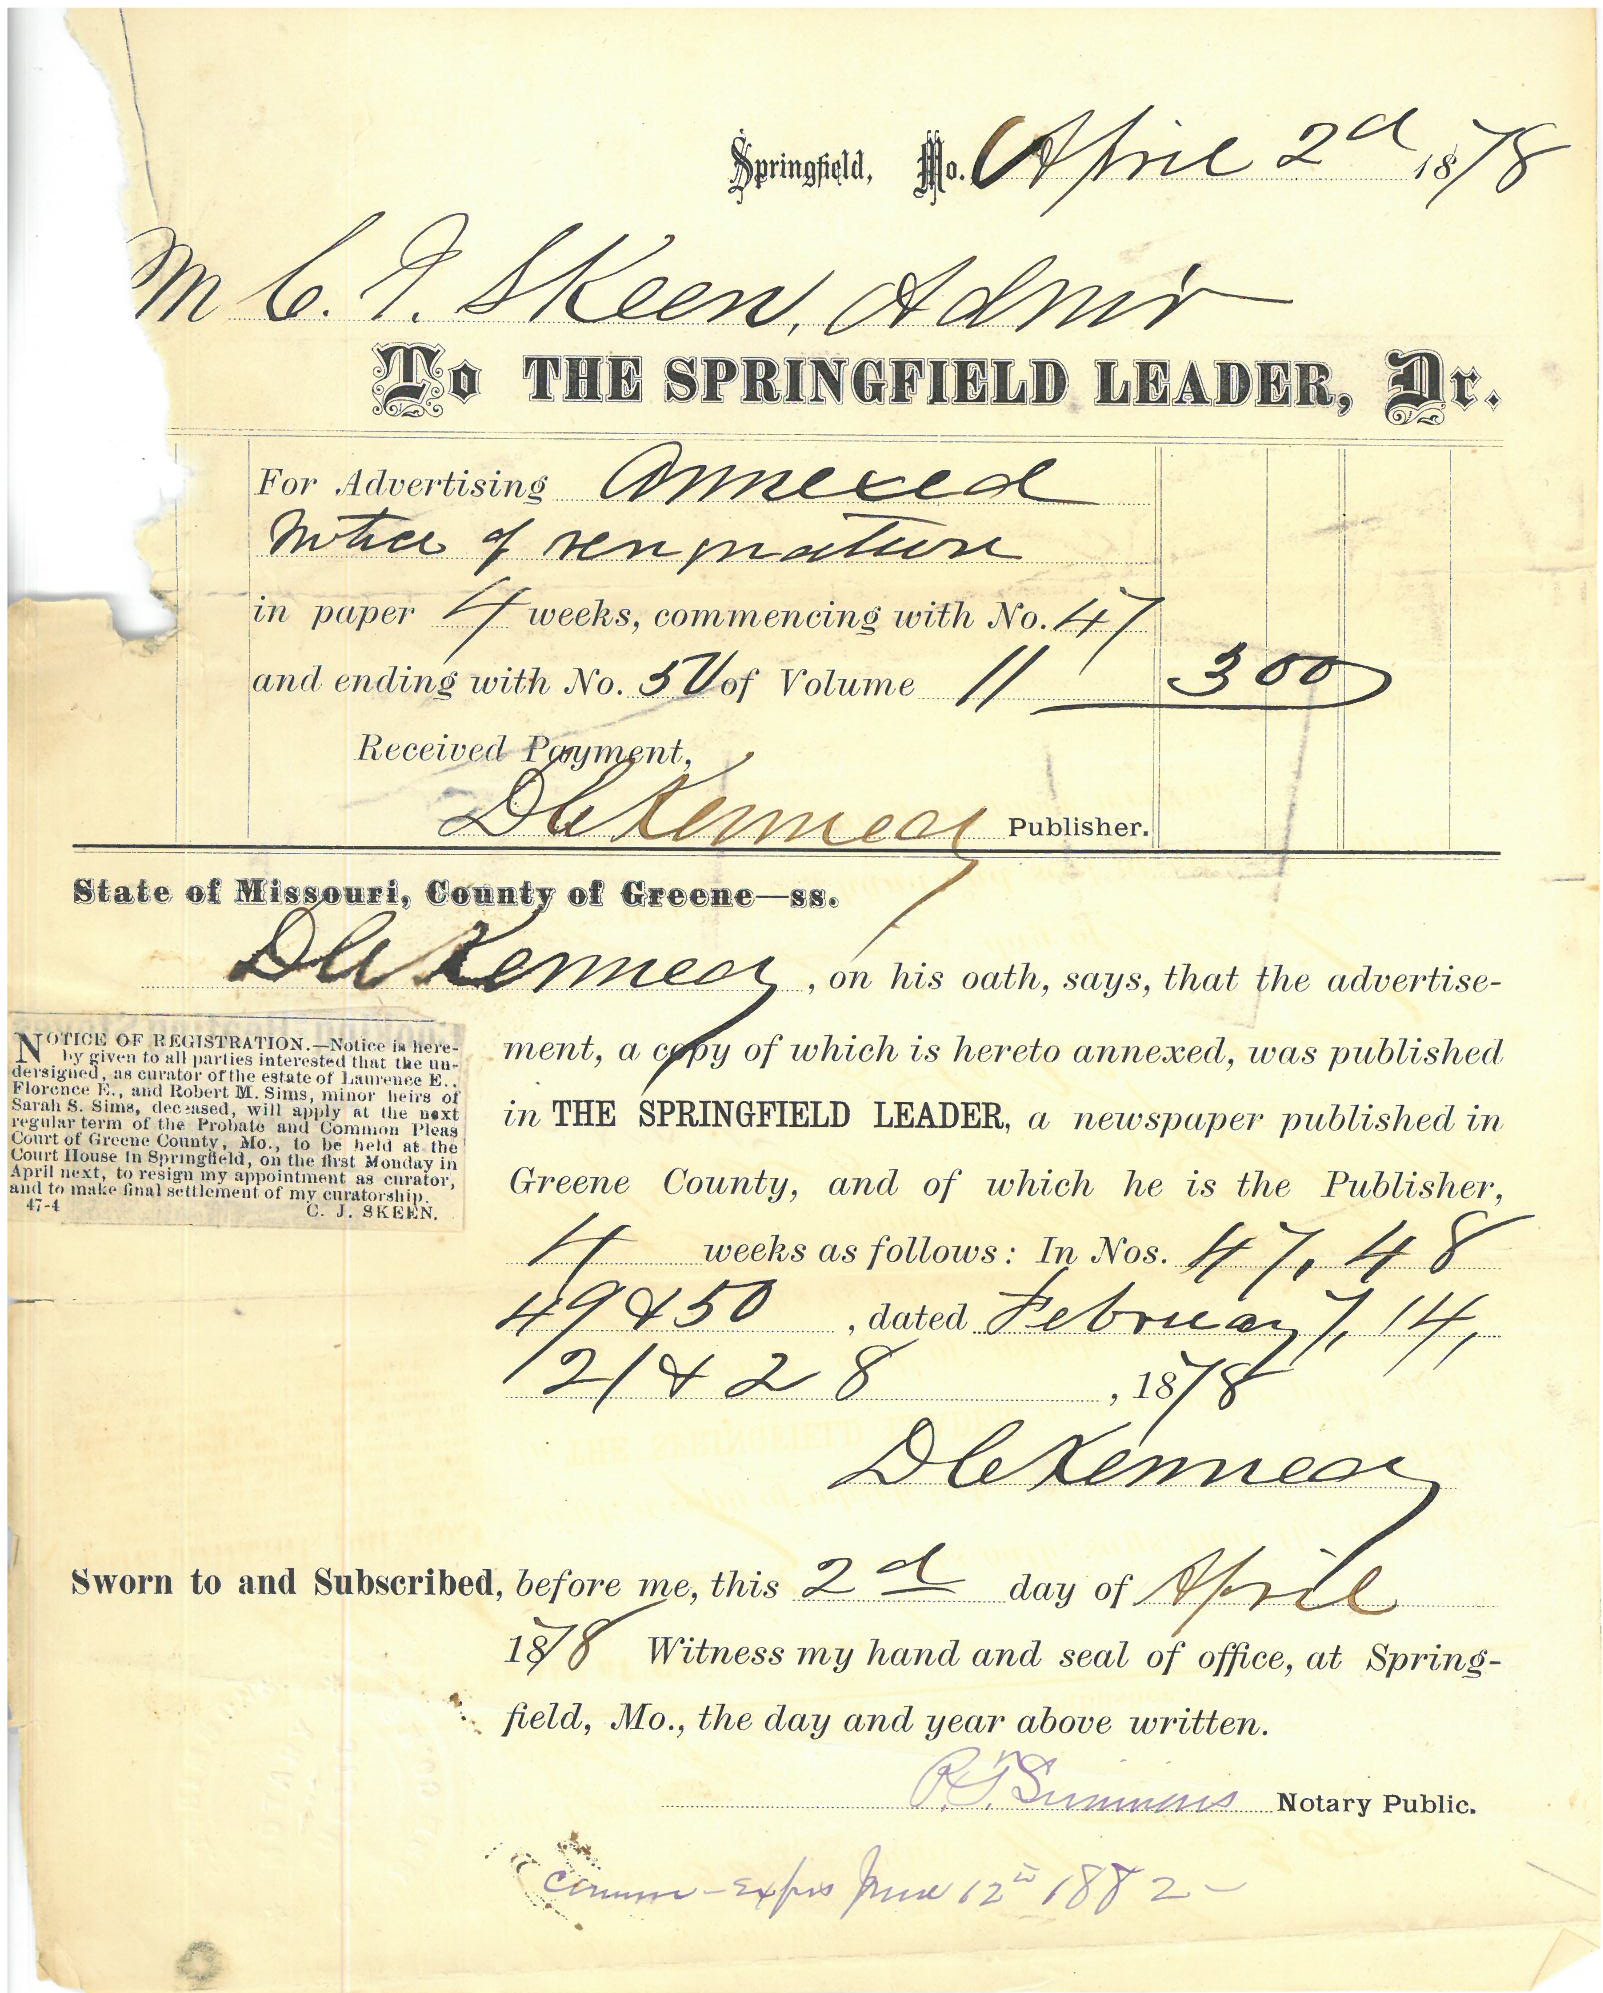 Springfield, Mo. April 2d 1878
M C. J. Skeen, Admr
To THE SPRINGFIELD LEADER, Dr.
For Advertising Annexed
Notice of resignation
in paper 4 weeks, commencing with No. 47
and ending with No. 50 of Volume 11 3 00
Received Payment,
D C Kennedy Publisher.
State of Missouri, County of Greene—ss.
D C Kennedy, on his oath, says, that the advertise-
ment, a copy of which is hereto annexed, was published
in THE SPRINGFIELD LEADER, a newspaper published in
Greene County, and of which he is the Publisher,
4 weeks as follows: In Nos. 47, 48
49 & 50, dated February 7, 14,
21 & 28, 1878
D C Kennedy
NOTICE OF REGISTRATION.—Notice is here-
by given to all parties interested that the un-
dersigned, as curator of the estate of Laurence E.,
Florence E., and Robert M. Sims, minor heirs of
Sarah S. Sims, deceased, will apply at the next
regular term of the Probate and Common Pleas
Court of Greene County, Mo., to be held at the
Court House in Springfield, on the first Monday in
April next, to resign my appointment as curator,
and to make final settlement of my curatorship.
47-4 C. J. SKEEN.
Sworn to and Subscribed, before me, this 2d day of April
1878 Witness my hand and seal of office, at Spring-
field, Mo., the day and year above written.
Simmons Notary Public.
Comm- Exprs June 12th 1882-